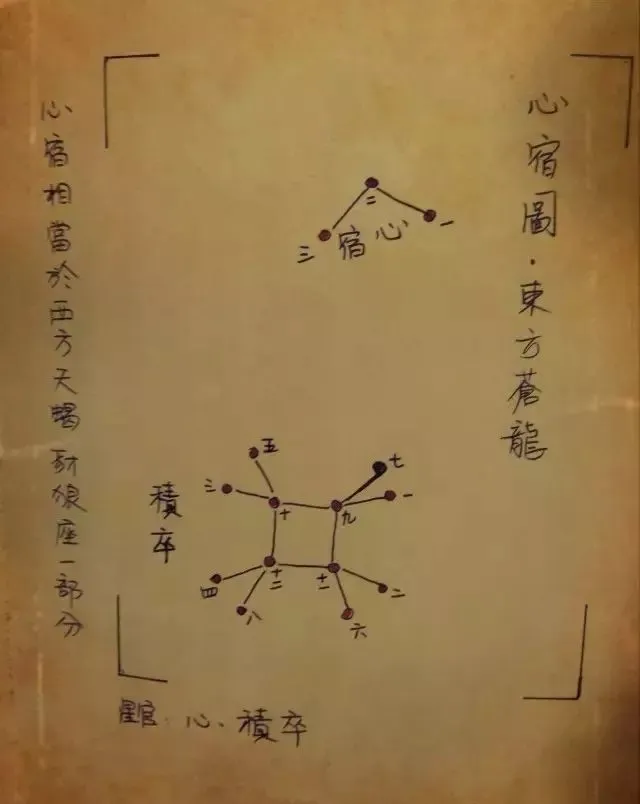 心宿圖·東方蒼龍
二
一
三
心宿
五
七
三
一
十
九
積卒
十二
十一
四
二
八
六
心宿相當於西方天蝎 豺狼座一部分
星官：心、積卒